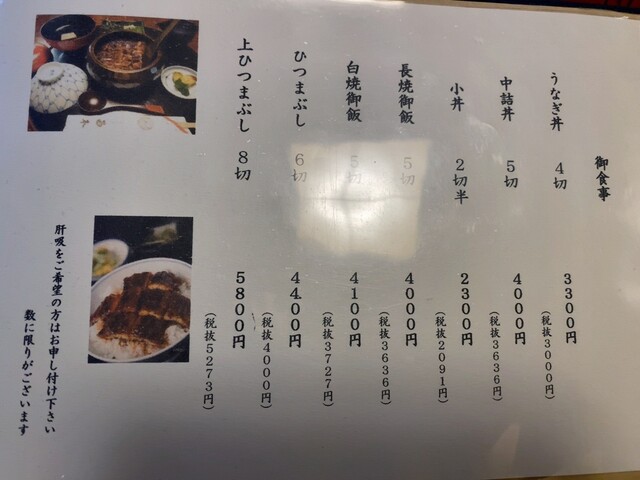 御食事
うなぎ丼 4切 3300円
(税抜3000円)
中詰丼 5切 4000円
(税抜3636円)
小丼 2切半 2300円
(税抜2091円)
長焼御飯 5切 4000円
(税抜3636円)
白焼御飯 5切 4100円
(税抜3727円)
ひつまぶし 6切 4400円
(税抜4000円)
上ひつまぶし 8切 5800円
(税抜5273円)
肝吸をご希望の方はお申し付け下さい
数に限りがございます